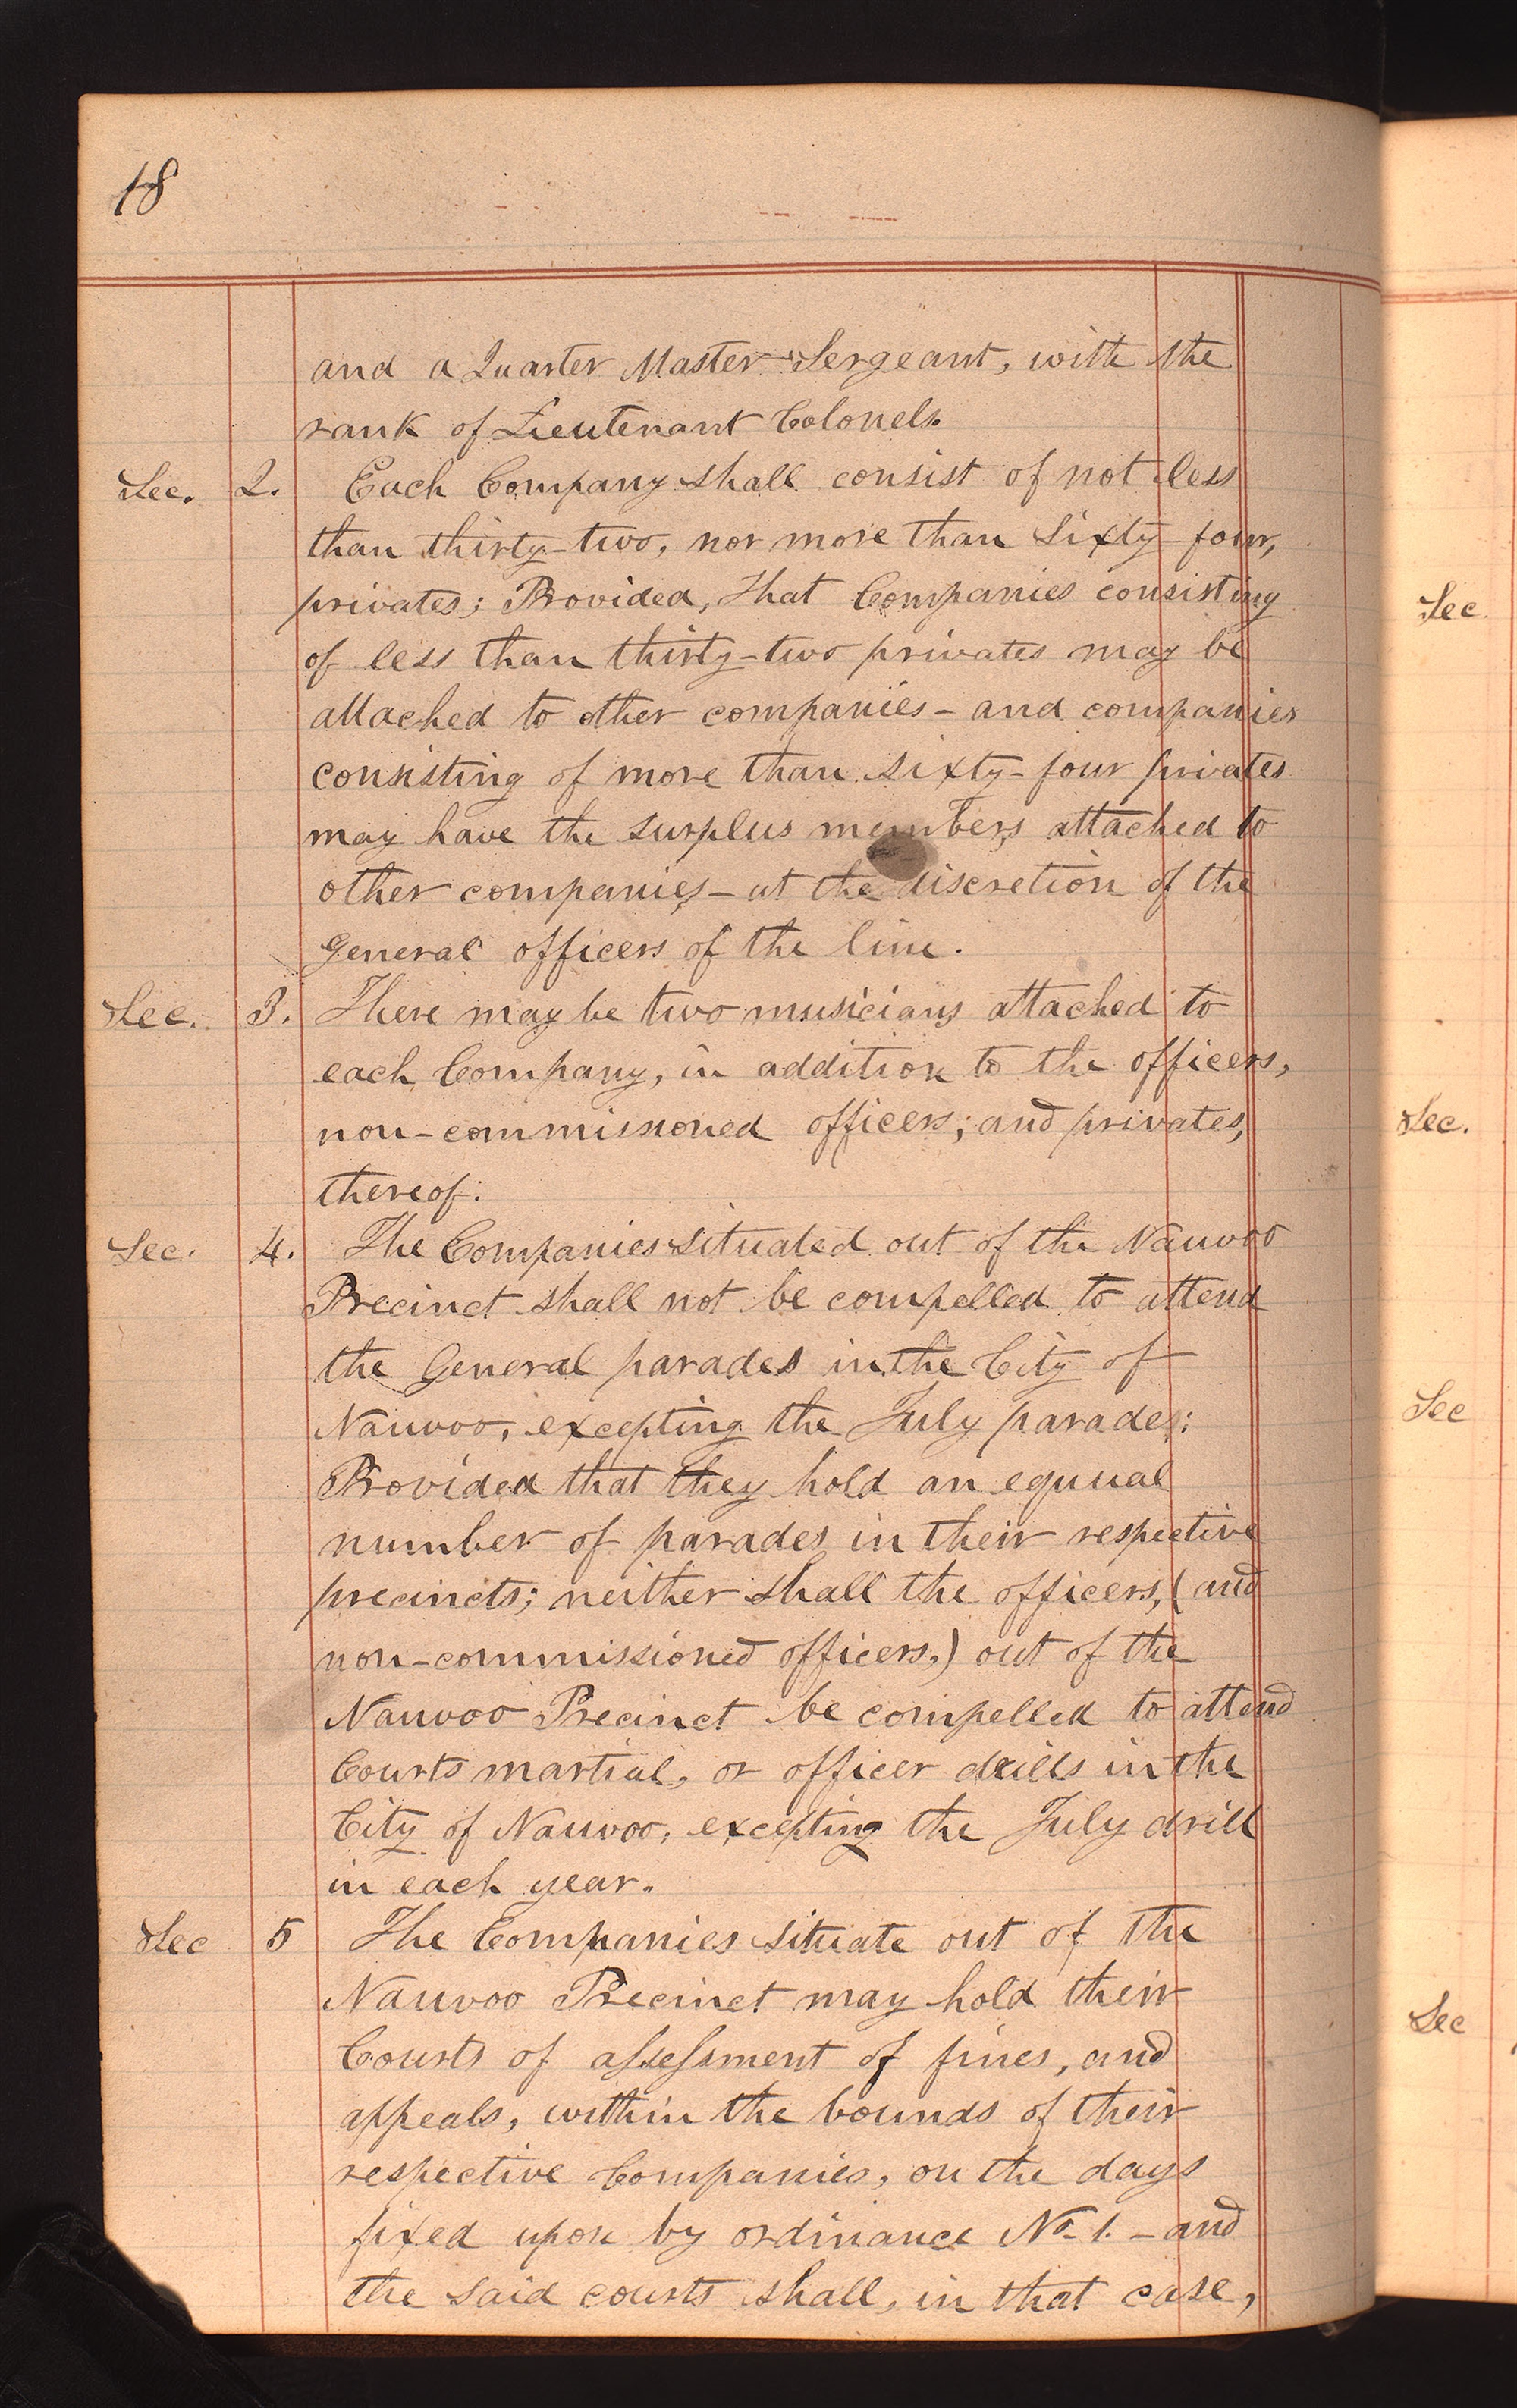 18
and a Quarter Master Sergeant, with the
rank of Lieutenant Colonels.
Sec. 2. Each Company shall consist of not less
than thirty-two, nor more than sixty-four,
privates; Provided, that Companies consisting
of less than thirty-two privates may be
attached to other companies - and companies
consisting of more than sixty-four privates
may have the surplus members attached to
other companies - at the discretion of the
General officers of the line.
Sec. 3. There may be two musicians attached to
each Company, in addition to the officers,
non-commissioned officers; and privates,
thereof.
Sec. 4. The Companies situated out of the Nauvoo
Precinct shall not be compelled to attend
the General parades in the City of
Nauvoo, excepting the July parades:
Provided that they hold an equual
number of parades in their respective
precincts; neither shall the officers, (and
non-commissioned officers,) out of the
Nauvoo Precinct be compelled to attend
Courts martial, or officer drills in the
City of Nauvoo, excepting the July drill
in each year.
Sec 5 The Companies situate out of the
Nauvoo Precinct may hold their
Courts of assessment of fines, and
appeals, within the bounds of their
respective Companies, on the days
fixed upon by ordinance No. 1. - and
the said courts shall, in that case,
Sec.
Sec.
Sec
Sec